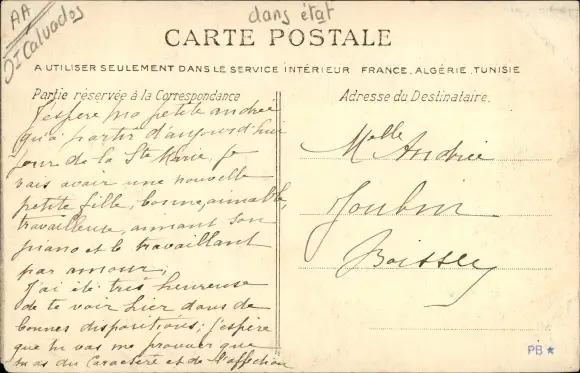 AA
dans état
DI Calvados
CARTE POSTALE
A UTILISER SEULEMENT DANS LE SERVICE INTÉRIEUR FRANCE, ALGÉRIE, TUNISIE
Partie réservée à la Correspondance
Adresse du Destinataire.
J'espère ma petite andrée
qu'à partir d'aujourd'hui
jour de la Ste Marie je
vais avoir une nouvelle
petite fille, bonne, aimable,
travailleuse, aimant son
piano et le travaillant
par amour,
J'ai été très heureuse
de te voir hier dans de
bonnes dispositions; j'espère
que tu vas me prouver que
tu as du Caractère et de l'affection
Melle Andrée
Joubin
Boissey
PB ★